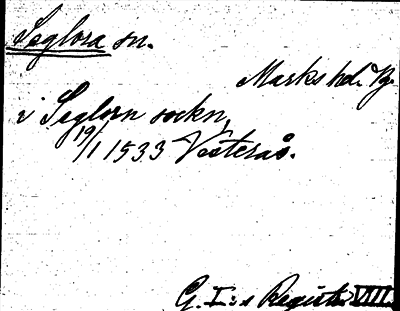 Seglora sn.
Marks hd. Vg.
i Seglorn sockn,
19/1 1533 Vesterås.
G. I:s Registr. VIII.